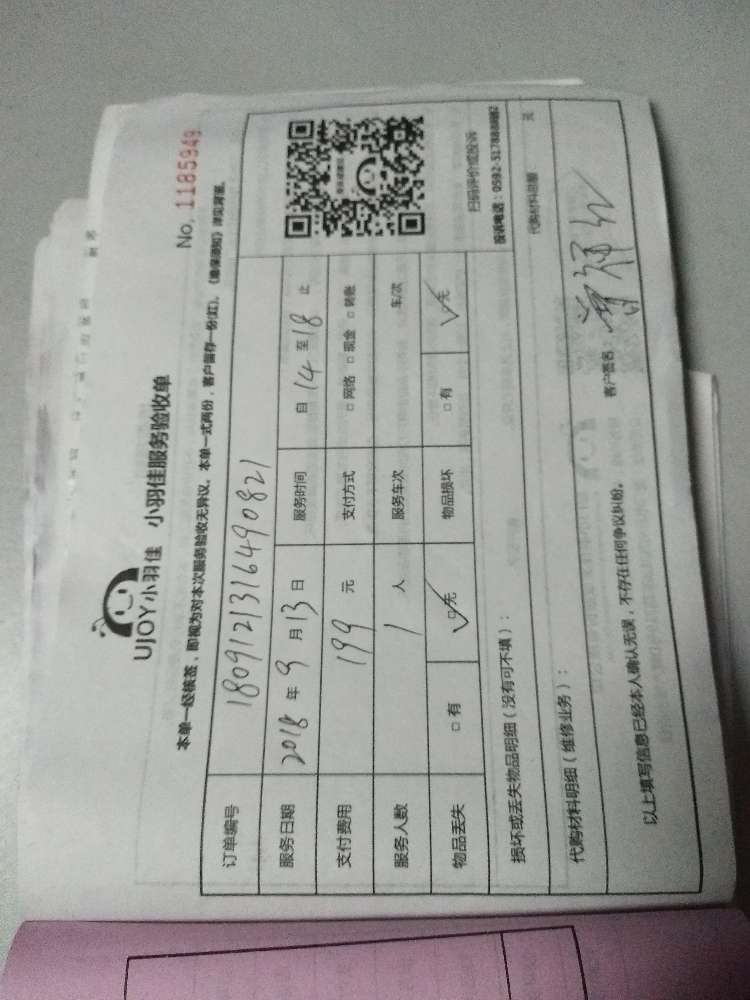 UJOY小羽佳 小羽佳服务验收单
No. 1185949
本单一经核签，即视为对本次服务验收无异议。本单一式两份，客户留存一份(红)。《维保须知》详见背面。
订单编号 180912131649082​1
服务日期 2018 年 9 月 13 日 服务时间 自 14 至 18 止
支付费用 199 元 支付方式 □ 网络 □ 现金 □ 转账
服务人数 1 人 服务车次 车/次
物品丢失 □ 有 □ 无 物品损坏 □ 有 □ 无
扫码评价或投诉
损坏或丢失物品明细（没有可不填）：
代购材料明细（维修业务）：
以上填写信息已经本人确认无误，不存在任何争议纠纷。
客户签名：